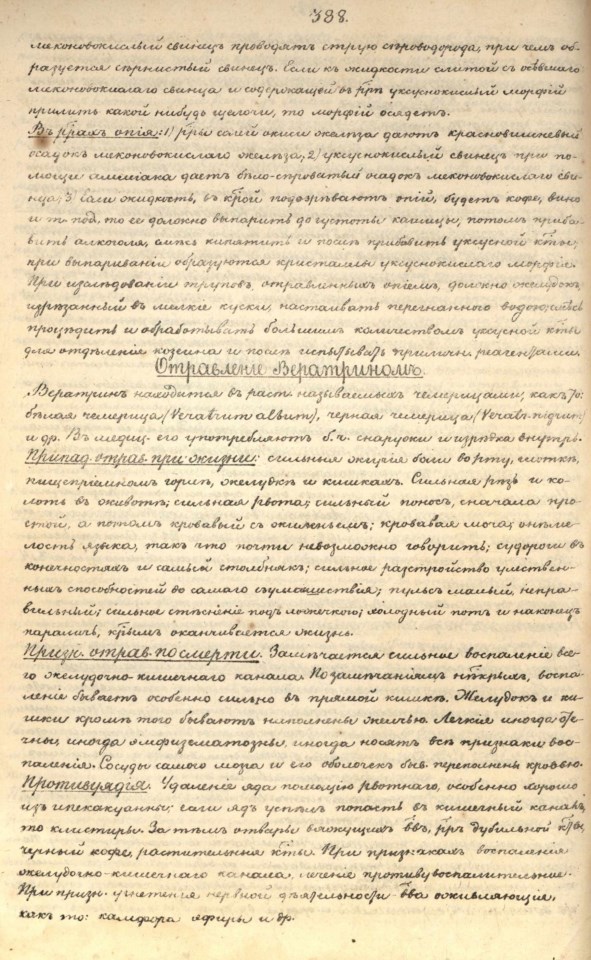 338.
меконовокислый свинецъ проводятъ струю сѣроводорода, при чемъ об-
разуется сѣрнистый свинецъ. Если къ жидкости слитой съ осѣвшаго
меконовокислаго свинца и содержащей въ рр уксуснокислый морфій
прилить какой нибудь щелочи, то морфій осядетъ.
Въ ррахъ опія: 1) рры солей окиси желѣза даютъ красновишневый
осадокъ меконовокислаго желѣза, 2) уксуснокислый свинец при по-
мощи амміака даетъ бѣло-сѣроватый осадокъ меконовокислаго сви-
нца, 3) Если жидкость, въ крой подозрѣваютъ опій, будетъ кофе, вино
и т. под., то ее должно выпарить до густоты кашицы, потомъ приба-
вить алкоголя, смѣсь кипятить и послѣ прибавить уксусной кты;
при выпариваніи образуются кристаллы уксуснокислаго морфія.
При изслѣдованіи труповъ, отравленныхъ опіемъ, должно желудокъ,
изрѣзанный въ мелкіе куски, настаивать перегнанного водою, смѣсь
процѣдить и обработывать большимъ количествомъ уксусной кты
для отдѣленія козеина и послѣ испытывать приличн. реагентами.
Отравленіе Вератриномъ.
Вератринъ находится въ раст. называемыхъ чемерицами, какъ то:
бѣлая чемерица (Veratrum album), черная чемерица (Veratr. nigrum)
и др. Въ медиц. его употребляютъ б. ч. снаружи и изрѣдка внутрь.
Припад. отрав. при жизни: сильныя жгучія боли во рту, глоткѣ,
пищепріемномъ горлѣ, желудкѣ и кишкахъ. Сильная рѣзь и ко-
лотъ въ животѣ; сильная рвота; сильный поносъ, сначала про-
стой, а потомъ кровавый съ жиленьемъ; кровавая моча; онѣме-
лость языка, такъ что почти невозможно говорить; судороги въ
конечностяхъ и самый столбнякъ; сильное разстройство умствен-
ныхъ способностей до самаго съумашествія; пульсъ малый, непра-
вильный; сильное стѣсненіе подъ ложечкою; холодный потъ и наконецъ
параличъ, крымъ оканчивается жизнь.
Призн. отрав. по смерти. Замѣчается сильное воспаленіе все-
го желудочно-кишечнаго канала. По замѣчаніямъ нѣкрыхъ, воспа-
леніе бываетъ особенно сильно въ прямой кишкѣ. Желудокъ и ки-
шки кромѣ того бываютъ наполнены желчью. Легкія иногда оте-
чны, иногда эмфизематозны, иногда носятъ всѣ признаки вос-
паленія. Сосуды самого мозга и его оболочекъ быв. переполнены кровью.
Противуядія. Удаленіе яда помощію рвотнаго, особенно хорошо
изъ ипекакуанны; если ядъ успѣлъ попасть въ кишечный каналъ,
то клистиры. За тѣмъ отвары вяжущихъ вввъ, рръ дубильной кты,
черный кофе, растительныя кты. При признакахъ воспаленія
желудочно-кишечнаго канала, леченіе противувоспалительное.
При призн. угнетенія нервной дѣятельности ввва оживляющія,
какъ то: камфора эфиры и др.